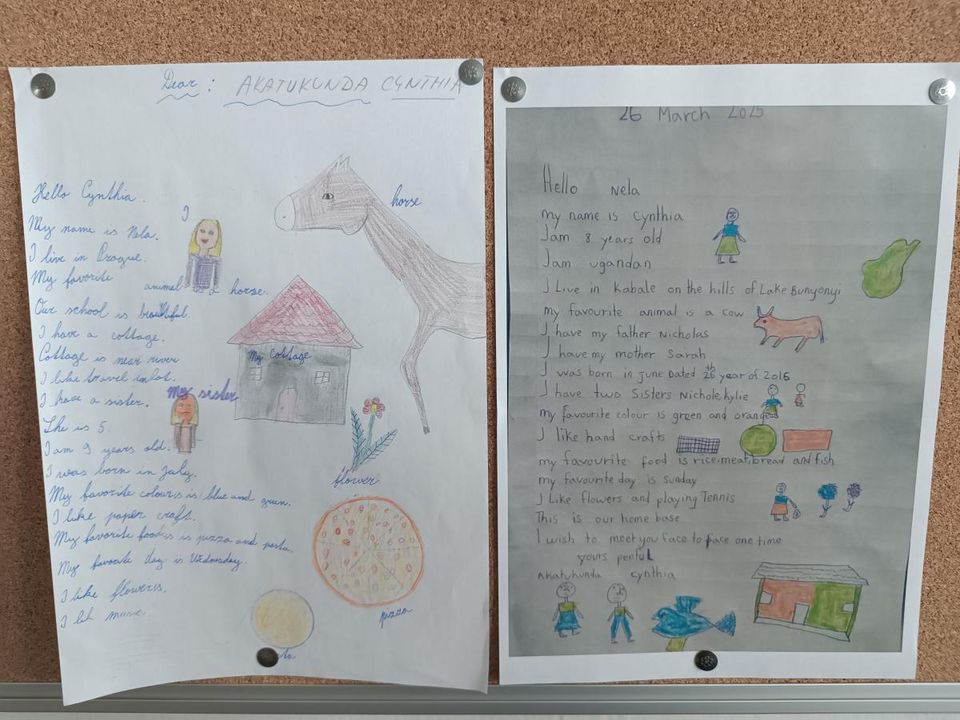 Dear : AKATUKUNDA CYNTHIA
Hello Cynthia.
I
My name is Nela.
I live in Prague.
My favorite
animal is a horse.
horse
Our school is beautiful.
I have a cottage.
My Cottage
Cottage is near river
I like travel
I have a sister.
my sister
She is 5.
I am 9 years old.
I was born in July.
flower
My favorite colours is blue and green.
I like paper craft.
My favorite food is pizza and pasta.
My favorite day is Wednesday.
pizza
I like flowers.
music
26 March 2025
Hello Nela
my name is Cynthia
I am 8 years old
I am ugandan
I Live in Kabale on the hills of Lake Bunyonyi
my favourite animal is a cow
I have my father Nicholas
I have my mother Sarah
I was born in june Dated 26th year of 2016
I have two Sisters Nichole, kylie
my favourite colour is green and orange
I like hand crafts
my favourite food is rice, meat, bread and fish
my favourite day is sunday
I Like flowers and playing Tennis
This is our home base
I wish to meet you face to face one time
yours penful
Akatukunda Cynthia